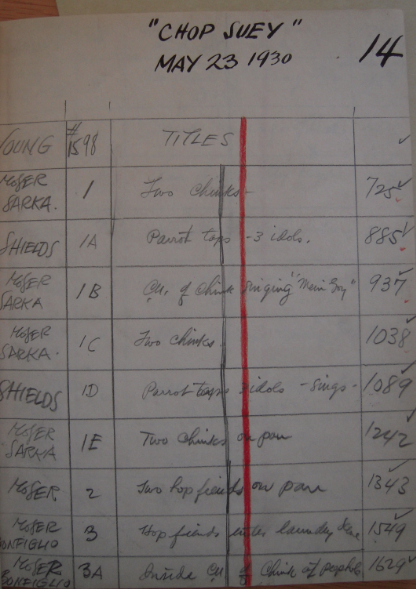 "CHOP SUEY"
MAY 23 1930
14
YOUNG #1598 TITLES
MOSER SARKA. 1 Two chinks 725
SHIELDS 1A Parrot taps - 3 idols. 885
MOSER SARKA 1B CU. of Chink singing "Mein Boy" 937
MOSER SARKA. 1C Two chinks 1038
SHIELDS 1D Parrot taps idols - sings - 1089
MOSER SARKA 1E Two Chinks on pan 1242
MOSER 2 Two hop fiends on pan 1343
MOSER BONFIGLIO 3 Hop fiends enter laundry 1549
MOSER BONFIGLIO 3A Inside CU of Chink at peephole 1629